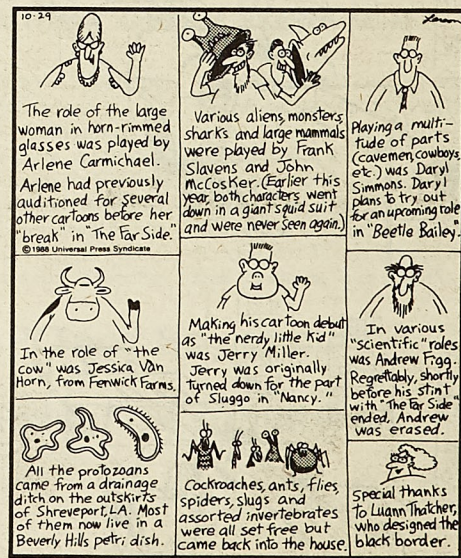 10-29
Larson
The role of the large
woman in horn-rimmed
glasses was played by
Arlene Carmichael.
Arlene had previously
auditioned for several
other cartoons before her
"break" in "The Far Side."
© 1988 Universal Press Syndicate
Various aliens, monsters,
sharks and large mammals
were played by Frank
Slavens and John
McCosker. (Earlier this
year, both characters went
down in a giant squid suit
and were never seen again.)
Playing a multi-
tude of parts
(cavemen, cowboys,
etc.) was Daryl
Simmons. Daryl
plans to try out
for an upcoming role
in "Beetle Bailey."
In the role of "the
cow" was Jessica Van
Horn, from Fenwick Farms.
Making his cartoon debut
as "the nerdy little kid"
was Jerry Miller.
Jerry was originally
turned down for the part
of Sluggo in "Nancy."
In various
"scientific" roles
was Andrew Figg.
Regrettably, shortly
before his stint
with "The Far Side"
ended, Andrew
was erased.
All the protozoans
came from a drainage
ditch on the outskirts
of Shreveport, LA. Most
of them now live in a
Beverly Hills petri dish.
Cockroaches, ants, flies,
spiders, slugs and
assorted invertebrates
were all set free but
came back into the house.
Special thanks
to Luann Thatcher,
who designed the
black border.